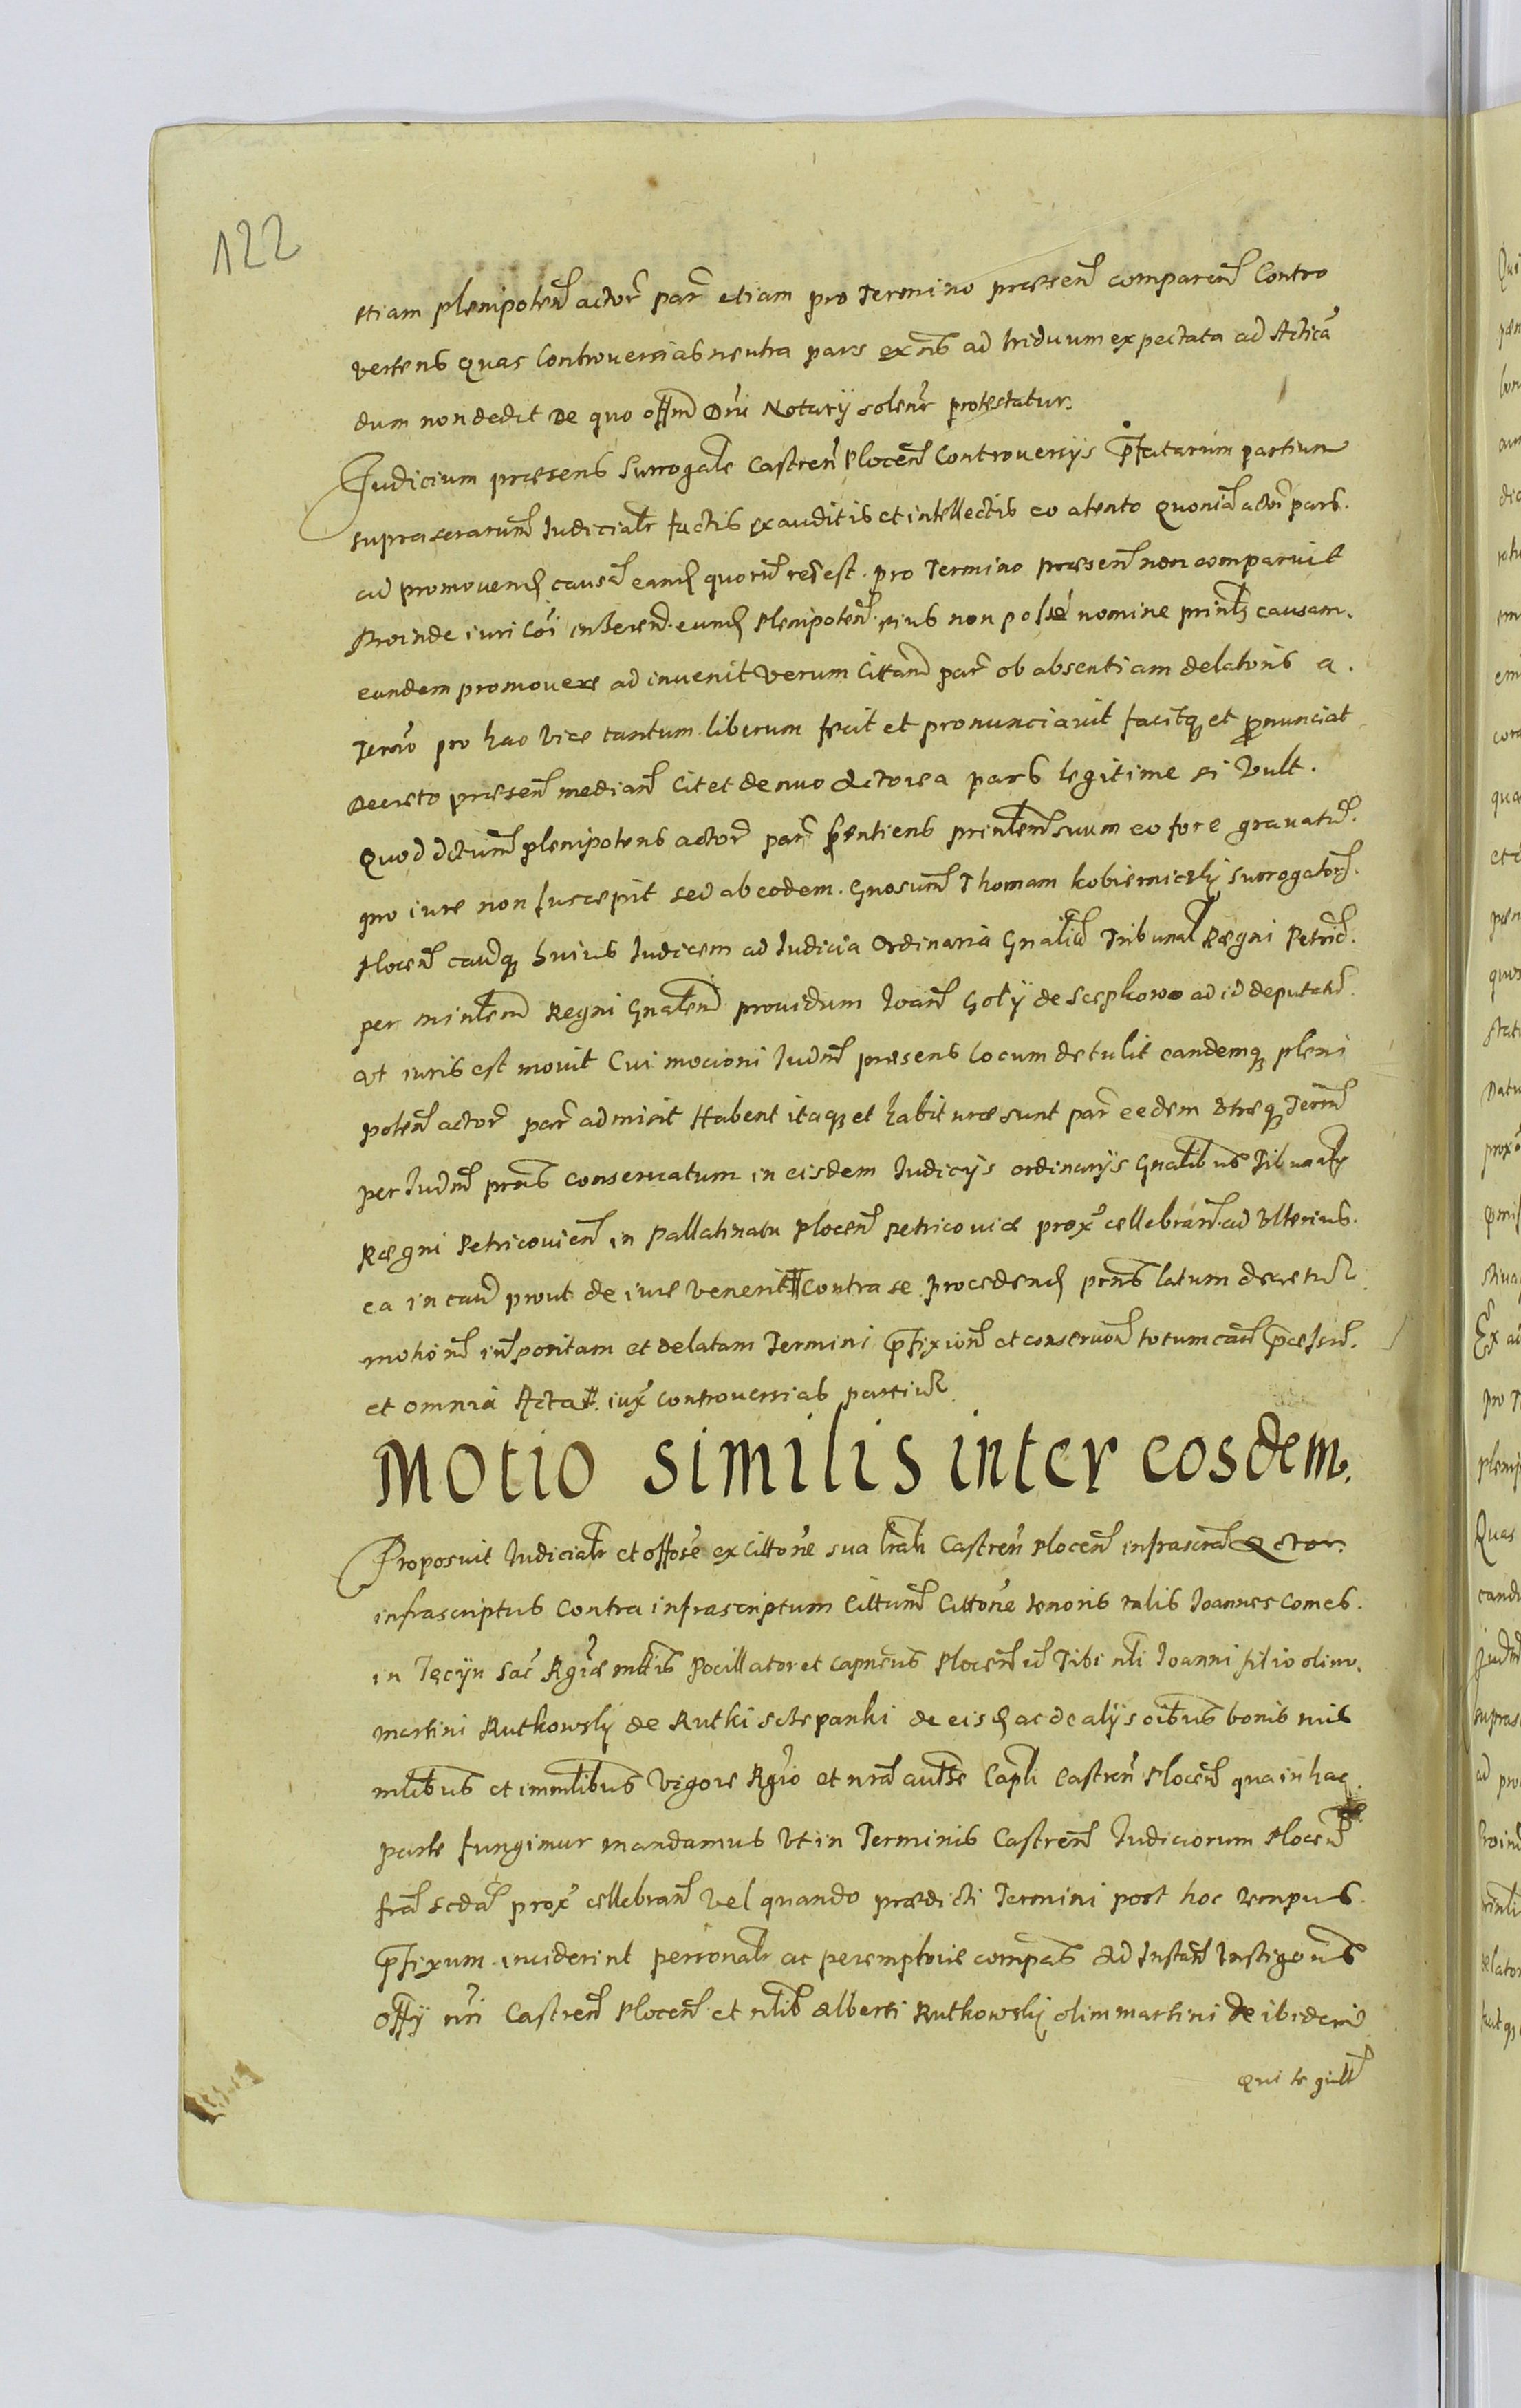 122
etiam plenipoten actor par etiam pro Termino praesen comparen Contro
vertens quas Controversias neutra pars ex nis ad triduum expectata ad Actica
dum non dedit De quo offm Dni Notarij solenr protestatur.
Judicium praesens Surrogale Castren Plocen Controversijs pfatarum partium
suprascrarum Judicialr factis exauditis et intellectis eo atento quonia actor pars.
ad promovend causa eand quoru res est. pro Termino praesen non comparuit
Proinde iuri coi inherend. eund plenipoten. eius non posse nomine prinlis causam.
eandem promovere ad invenit verum Cittam par ob absentiam delatoris a.
Termo pro hac vice tantum liberum fecit et pronunciavit facitq et pronunciat
Decreto praesen median Citet denuo Actorea pars legitime si vult.
Quod dctum plenipotens actor par sentiens prinlem suum eo fore gravatu.
pro iure non suscepit sed ab eodem. Gnosum Thomam kobiernicky Surrogator.
Plocen causq huius Judicem ad Judicia Ordinaria Gnaliu Tribunal Regni Petric.
per minlem Regni Gnalem providum Joan Goly de Scepkowo ad id deputatu.
ut iuris est movit Cui mocioni Judm praesens locum detulit eandemq pleni
poten actor par admisit Habent itaq et habiturae sunt par eedem utraeq Termi
per Judm prns conservatum in eisdem Judicijs ordinarijs Gnalibus Tribunaly
Regni Petricovien in Pallatinatu Plocen Petricoviae prox cellebran. ad ulterius.
ea in cau prout de iure venerit contra se procedend prns latum decretu
motione interpositam et delatam Termini pfixione et conservone totum cae processu.
et omnia Acta. iux controversias partiu
Motio similis inter eosdem.
Proposuit Judicialr et offose ex Cittone sua lrali Castren Plocen infrascra Actor.
infrascriptus Contra infrascriptum Cittum Cittone tenoris talis Joannes Comes.
in Tęczyn Sac Rgiae mttis Pocillator et Capneus Plocen Tibi nli Joanni filio olim.
Martini Rutkowsky de Rutki sczepanki de eisd ac de alijs oibus bonis tuis
mlibus et immlibus vigore Rgio et nra autte Capli Castren Plocen qua in hac.
parte fungimur mandamus ut in Terminis Castren Judiciorum Plocen
fra scda prox cellebran vel quando praedicti Termini post hoc tempus.
pfixum. inciderint personalr ac peremptorie compas Ad Instan Instigoris
offij nri Castren Plocen et nlis Alberti Rutkowsky olim Martini de ibidem
qui te